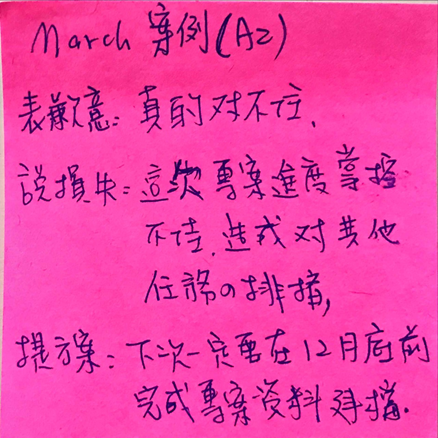 March 案例(A2)
表歉意: 真的对不住.
說損失: 這次專案進度掌控
不佳, 造成对其他
任務の排擠,
提方案: 下次一定要在12月底前
完成專案資料建構.